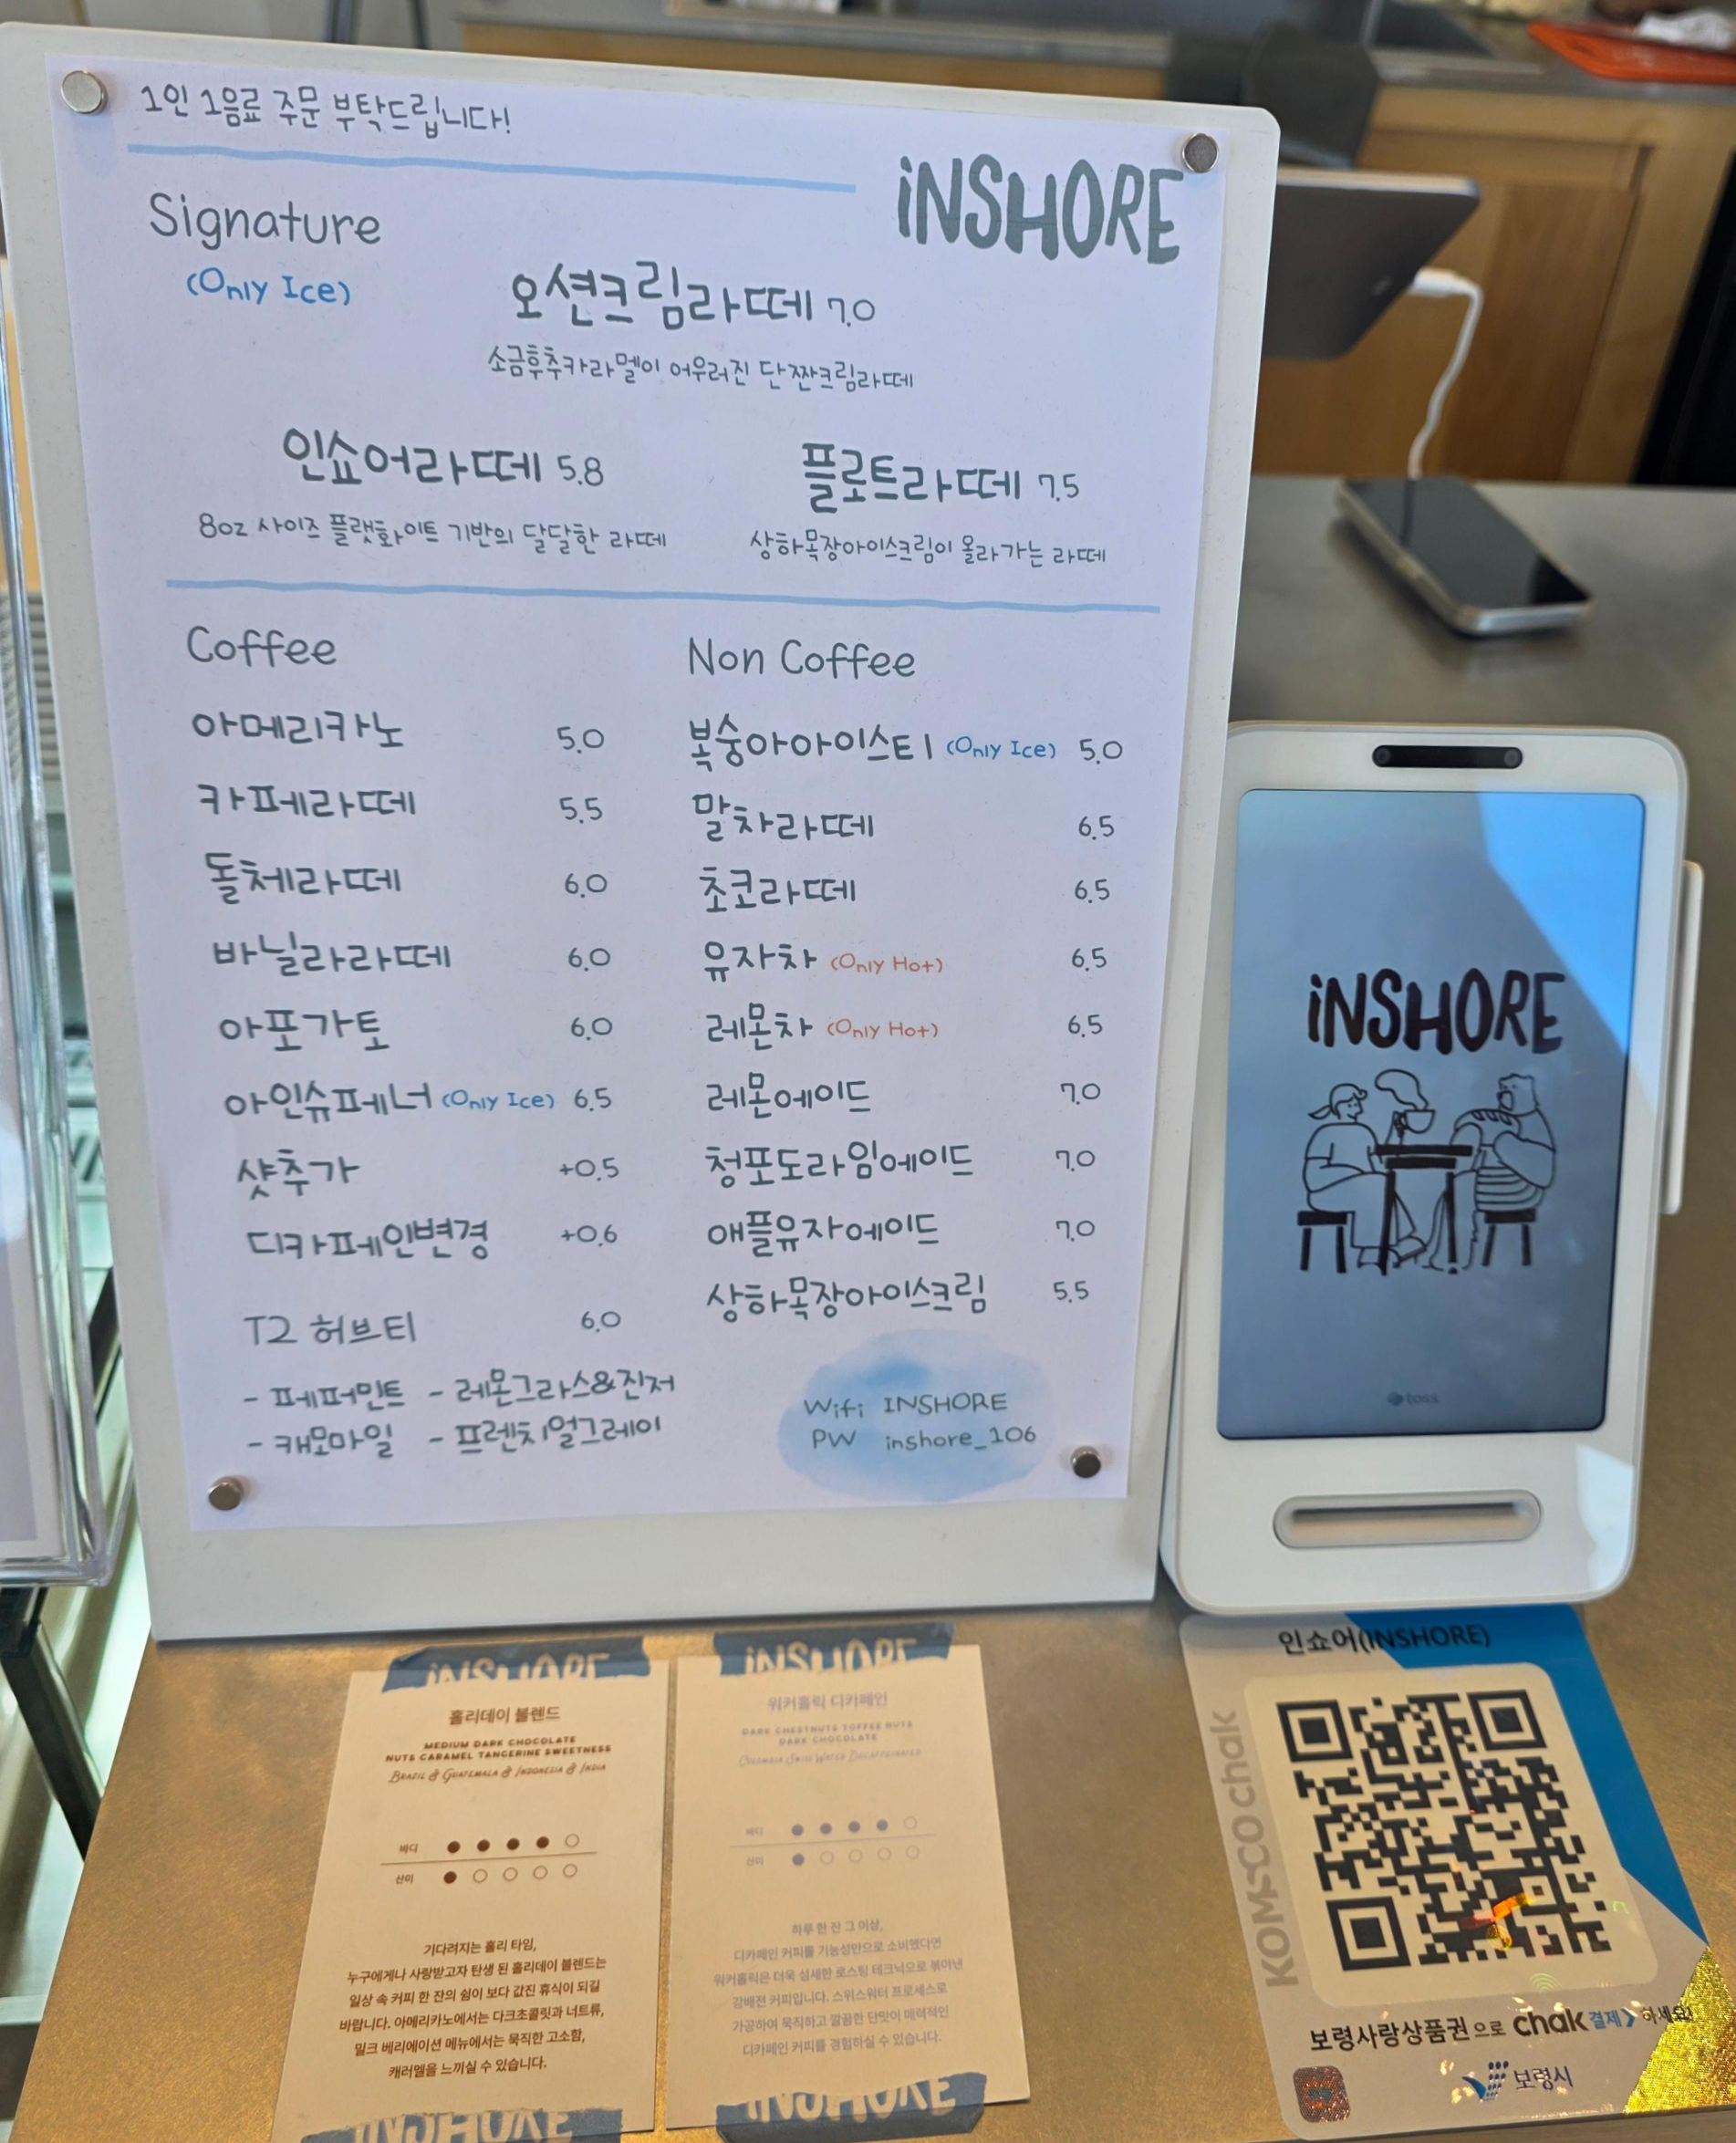 1인 1음료 주문 부탁드립니다!
iNSHORE
Signature
(Only Ice)
오션크림라떼 7.0
소금후추카라멜이 어우러진 단짠크림라떼
인쇼어라떼 5.8
8oz 사이즈 플랫화이트 기반의 달달한 라떼
플로트라떼 7.5
상하목장아이스크림이 올라가는 라떼
Coffee
아메리카노 5.0
카페라떼 5.5
돌체라떼 6.0
바닐라라떼 6.0
아포가토 6.0
아인슈페너 (Only Ice) 6.5
샷추가 +0.5
디카페인변경 +0.6
T2 허브티 6.0
- 페퍼민트 - 레몬그라스&진저
- 캐모마일 - 프렌치얼그레이
Non Coffee
복숭아아이스티 (Only Ice) 5.0
말차라떼 6.5
초코라떼 6.5
유자차 (Only Hot) 6.5
레몬차 (Only Hot) 6.5
레몬에이드 7.0
청포도라임에이드 7.0
애플유자에이드 7.0
상하목장아이스크림 5.5
Wifi INSHORE
PW inshore_106
iNSHORE
toss
iNSHORE
홀리데이 블렌드
MEDIUM DARK CHOCOLATE
NUTS CARAMEL TANGERINE SWEETNESS
BRAZIL & GUATEMALA & INDONESIA & INDIA
바디
산미
기다려지는 홀리 타임,
누구에게나 사랑받고자 탄생 된 홀리데이 블렌드는
일상 속 커피 한 잔의 쉼이 보다 값진 휴식이 되길
바랍니다. 아메리카노에서는 다크초콜릿과 너트류,
밀크 베리에이션 메뉴에서는 묵직한 고소함,
캐러멜을 느끼실 수 있습니다.
iNSHORE
iNSHORE
워커홀릭 디카페인
DARK CHESTNUTS TOFFEE NUTS
DARK CHOCOLATE
COLOMBIA SWISS WATER DECAFFEINATED
바디
산미
하루 한 잔 그 이상,
디카페인 커피를 기능성만으로 소비했다면
워커홀릭은 더욱 섬세한 로스팅 테크닉으로 볶아낸
강배전 커피입니다. 스위스워터 프로세스로
가공하여 묵직하고 깔끔한 단맛이 매력적인
디카페인 커피를 경험하실 수 있습니다.
iNSHORE
인쇼어(INSHORE)
KOMSCO chak
보령사랑상품권으로 chak 결제 하세요!
보령시